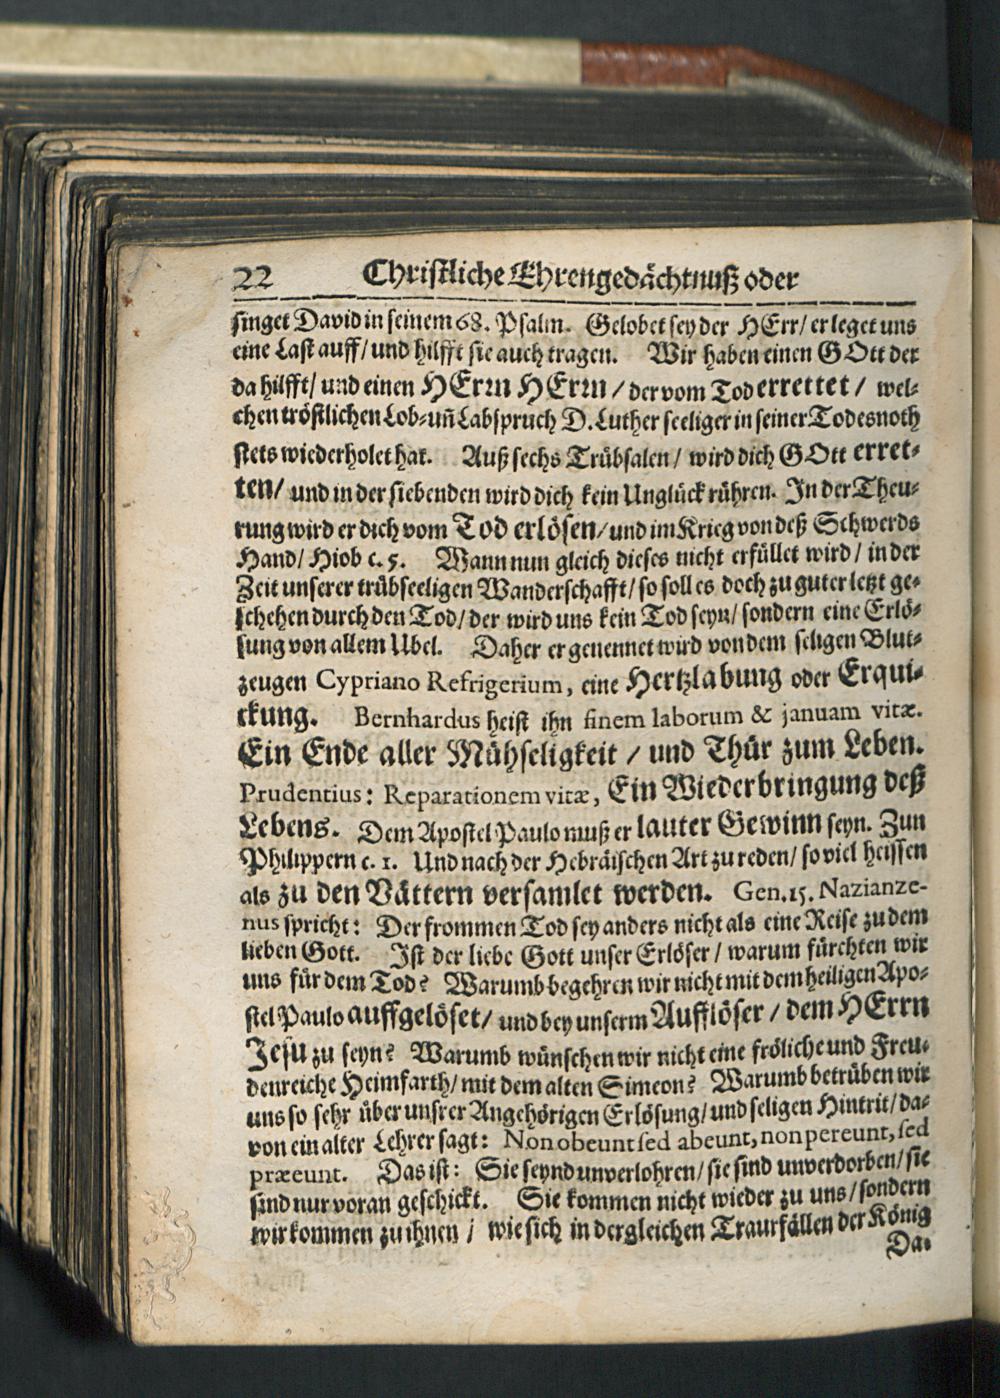 22 Christliche Ehrengedächtnuß oder
singet David in seinem 68. Psalm. Gelobet sey der HErr/ er leget uns
eine Last auff/ und hilfft sie auch tragen. Wir haben einen GOtt der
da hilfft/ und einen HErrn HErrn / der vom Tod errettet / wel-
chen tröstlichen Lob-uñ Labspruch D. Luther seeliger in seiner Todesnoth
stets wiederholet hat. Auß sechs Trübsalen / wird dich GOtt erret-
ten/ und in der siebenden wird dich kein Unglück rühren. In der Theu-
rung wird er dich vom Tod erlösen/ und im Krieg von deß Schwerds
Hand/ Hiob c. 5. Wann nun gleich dieses nicht erfüllet wird / in der
Zeit unserer trübseeligen Wanderschafft/ so soll es doch zu guter letzt ge-
schehen durch den Tod/ der wird uns kein Tod seyn/ sondern eine Erlö-
sung von allem Ubel. Daher er genennet wird von dem seligen Blut-
zeugen Cypriano Refrigerium, eine Hertzlabung oder Erqui-
ckung. Bernhardus heist ihn finem laborum & januam vitæ.
Ein Ende aller Mühseligkeit / und Thür zum Leben.
Prudentius: Reparationem vitæ, Ein Wiederbringung deß
Lebens. Dem Apostel Paulo muß er lauter Gewinn seyn. Zun
Philippern c. 1. Und nach der Hebräischen Art zu reden/ so viel heissen
als zu den Vättern versamlet werden. Gen. 15. Nazianze-
nus spricht: Der frommen Tod sey anders nicht als eine Reise zu dem
lieben Gott. Ist der liebe Gott unser Erlöser / warum fürchten wir
uns für dem Tod? Warumb begehren wir nicht mit dem heiligen Apo-
stel Paulo auffgelöset/ und bey unserm Aufflöser / dem HErrn
Jesu zu seyn? Warumb wünschen wir nicht eine fröliche und Freu-
denreiche Heimfarth/ mit dem alten Simeon? Warumb betrüben wir
uns so sehr über unsrer Angehörigen Erlösung/ und seligen Hintrit/ da-
von ein alter Lehrer sagt: Non obeunt sed abeunt, non pereunt, sed
præeunt. Das ist: Sie seynd unverlohren/ sie sind unverdorben/ sie
sind nur voran geschickt. Sie kommen nicht wieder zu uns/ sondern
wir kommen zu ihnen / wie sich in dergleichen Traurfällen der König
Da-